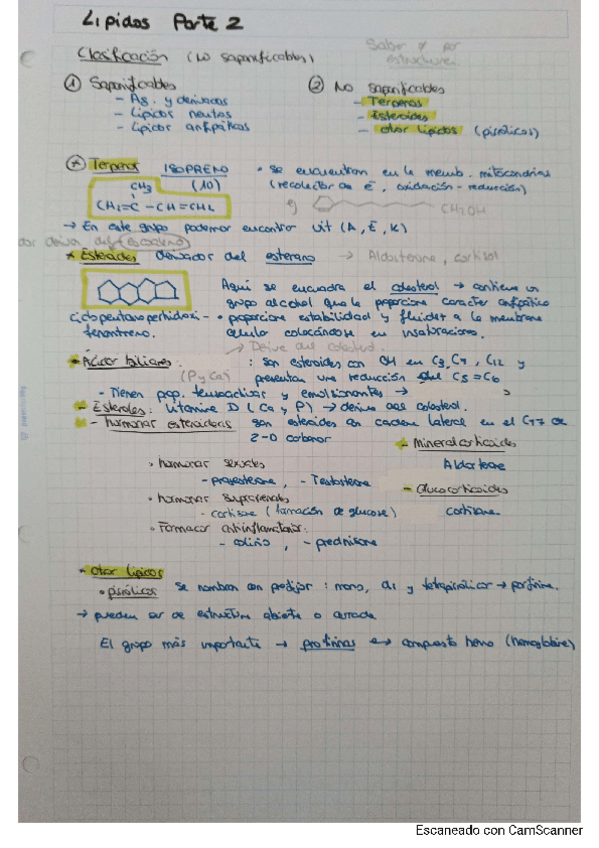 Lípidos Parte 2
Clasificación (no saponificables)
Saber x por estructura.
① Saponificables
- Ag. y derivados
- Lípidos neutros
- Lípidos anfipáticos
② No saponificables
- Terpenos
- Esteroides
- otros lípidos (pirólicos)
* Terpenos ISOPRENO (10)
CH3
CH2=C-CH=CH2
• Se encuentran en la memb. mitocondrias
(recolector de E, oxidación-reducción)
ej CH2OH
→ En este grupo podemos encontrar vit (A, E, K)
deriva del (escualeno)
* Esteroides derivados del esterano → Aldosterona, cortisol
ciclopentanoperhidro-
fenantreno.
Aquí se encuadra el colesterol → contiene un
grupo alcohol que le proporciona caracter anfipático
• proporciona estabilidad y fluidez a la membrana
celular colocándose en insaturaciones.
→ Deriva del colesterol.
- Ácidos biliares: : son esteroides con OH en C3, C7, C12 y
(P y Ca) presentan una reducción del C5=C6
- Tienen prop. tensoactivas y emulsionantes →
- Esteroles: Vitamina D (Ca y P) → deriva del colesterol.
- hormonas esteroideas son esteroides con cadena lateral en el C17 de
2-0 carbonos
- Mineralcorticoides
Aldosterona
- Glucocorticoides
cortisona.
• hormonas sexuales
- progesterona, - Testosterona
• hormonas suprarrenales
- cortisona (formación de glucosa)
• Fármacos antiinflamatorios:
- prednisona
- otros lípidos
• pirólicos se nombran con prefijos: mono, di y tetrapirólicos → porfirina.
→ pueden ser de estructura abierta o cerrada
El grupo más importante → porfirinas ↔ compuesto hemo (hemoglobina)
Escaneado con CamScanner